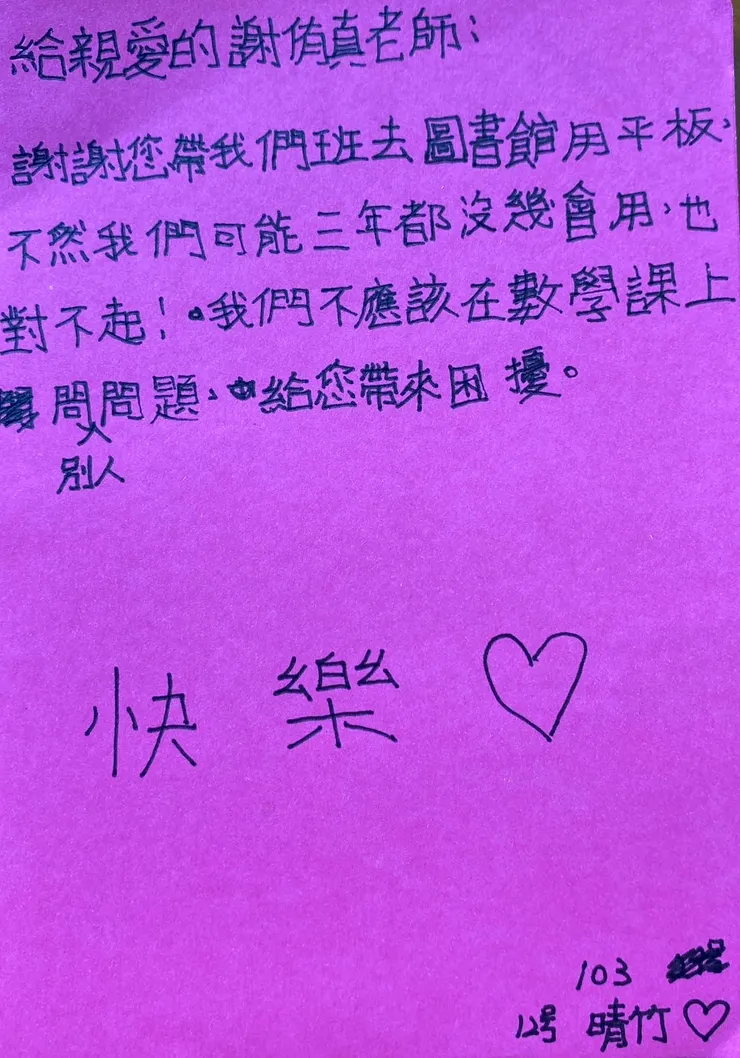 給親愛的謝侑真老師：
謝謝您帶我們班去圖書館用平板，
不然我們可能三年都沒幾會用，也
對不起！我們不應該在數學課上
問問題，給您帶來困擾。
別人
快樂♡
103
12号 晴竹♡